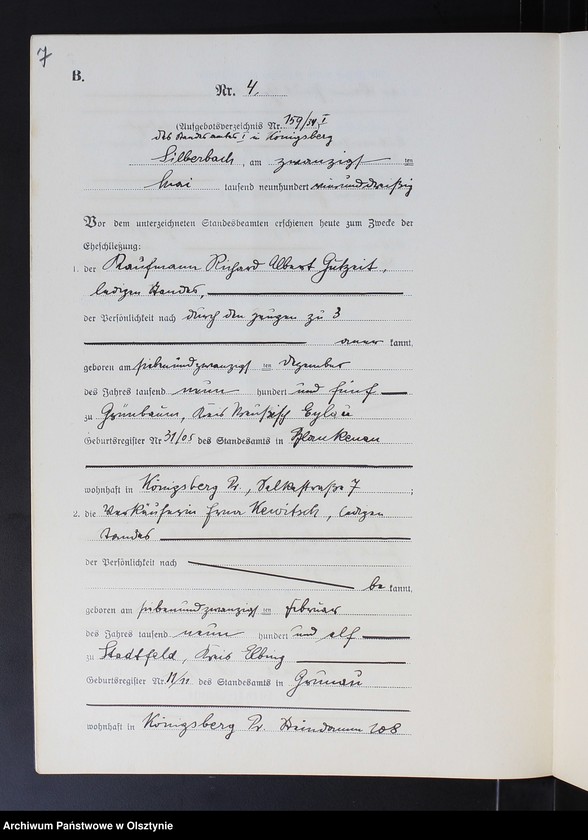 7
B.
Nr. 4.
(Aufgebotsverzeichnis Nr. 159/34 I
des Standesamtes I in Königsberg
Silberbach, am zwanzigsten
Mai tausend neunhundert vierunddreißig
Vor dem unterzeichneten Standesbeamten erschienen heute zum Zwecke der
Eheschließung:
1. der Kaufmann Richard Albert Gutzeit,
ledigen Standes,
der Persönlichkeit nach durch den Zeugen zu 3
aner kannt,
geboren am siebenundzwanzigsten Dezember
des Jahres tausend neun hundert und fünf
zu Grünbaum, Kreis Preußisch Eylau
Geburtsregister Nr 31/05 des Standesamts in Blankenau
wohnhaft in Königsberg Pr.,
2. die Verkäuferin Erna Kewitsch, ledigen
Standes
der Persönlichkeit nach
be kannt,
geboren am siebenundzwanzigsten Februar
des Jahres tausend neun hundert und elf
zu Stadtfeld, Kreis Elbing
Geburtsregister Nr. 11/11 des Standesamts in Grunau
wohnhaft in Königsberg Pr. Steindamm
Archiwum Państwowe w Olsztynie